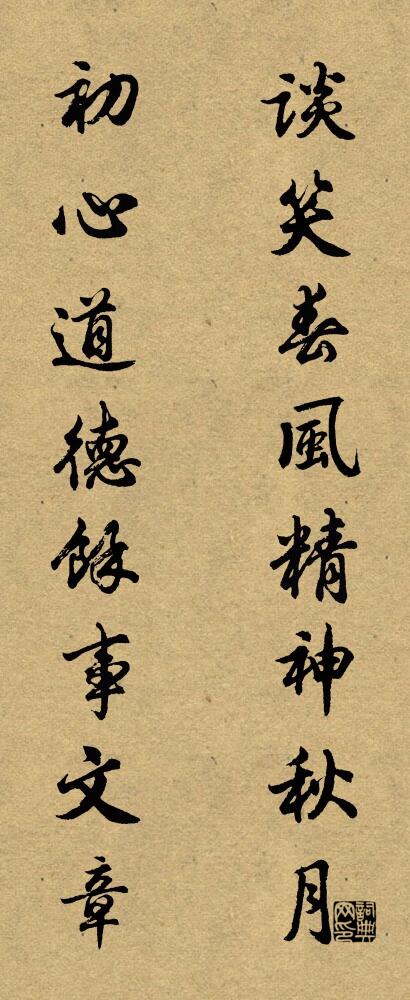 談笑春風精神秋月
初心道德餘事文章
詞典網印